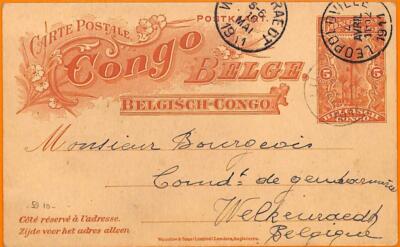 CARTE POSTALE
POSTKAART
LEOPOLDVILLE
AVRIL
1911
MAI
1911
Congo
BELGE.
BELGISCH-CONGO.
5
5
BELGISCH
CONGO
Monsieur Bourgeois
Comdt de gendarmerie
Welkenraedt
Belgique
Côté réservé à l'adresse.
Zijde voor het adres alleen
Waterlow & Sons Limited, Londres, Angleterre.